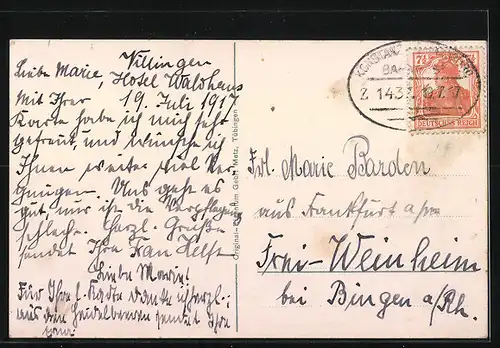 Villingen
Liebe Marie, Hotel Waldhaus
Mit Ihrer 19. Juli 1917
Karte habe ich mich sehr
gefreut, und wünsche ich
Ihnen weiter viel Ver-
gnügen. Uns geht es
gut, nur ist die Verpflegung
schlecht. Herzl. Grüße
sendet Ihre Frau
Liebe Marie!
Für Ihre l. Karte danke herzl.;
aus den Heidelbeeren sendet Ihre
Original-Eigentum Gebr. Metz, Tübingen
KONSTANZ
Z. 1437
7½ 7½
DEUTSCHES REICH
Frl. Marie Barden
aus Frankfurt a/m
Frei-Weinheim
bei Bingen a/Rh.